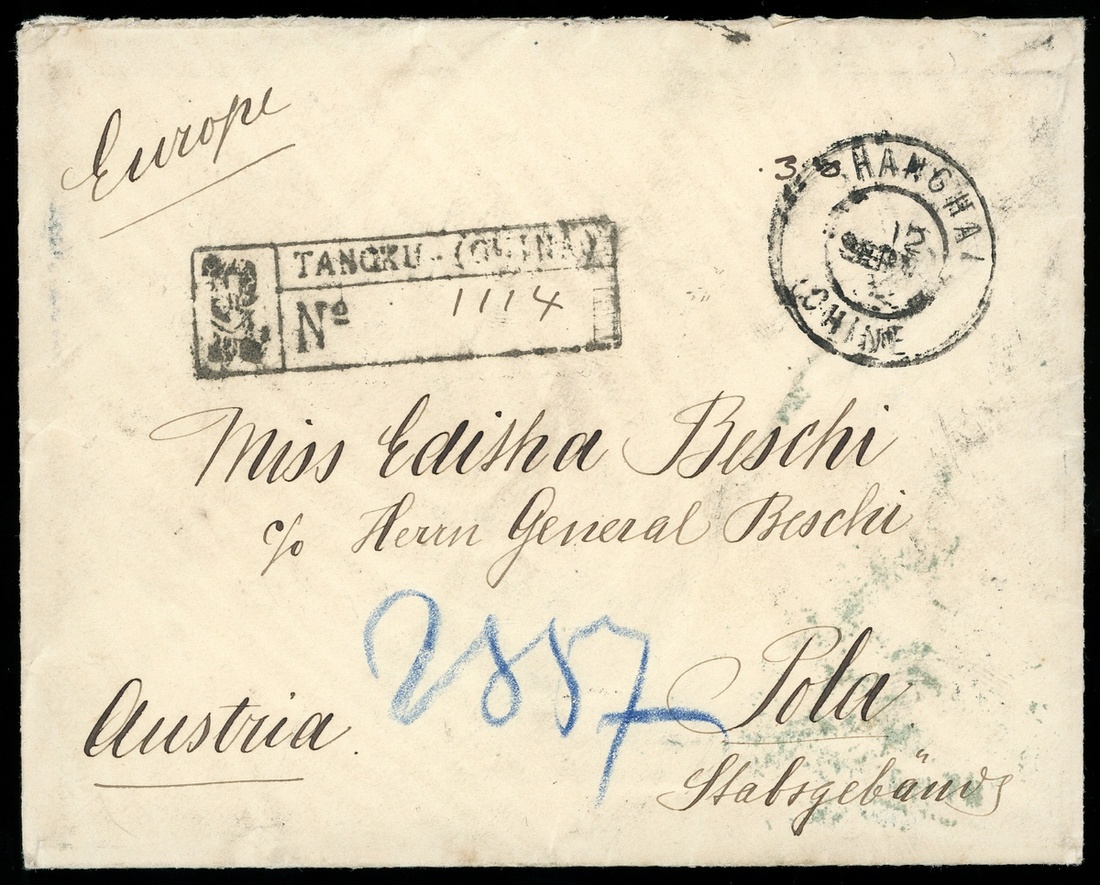 Europe
.3
SHANGHAI
12
CHINE
TANGKU. (CHINA)
Nº 1114
Miss Editha Beschi
c/o Herrn General Beschi
2857
Pola
Austria.
Stabsgebäude